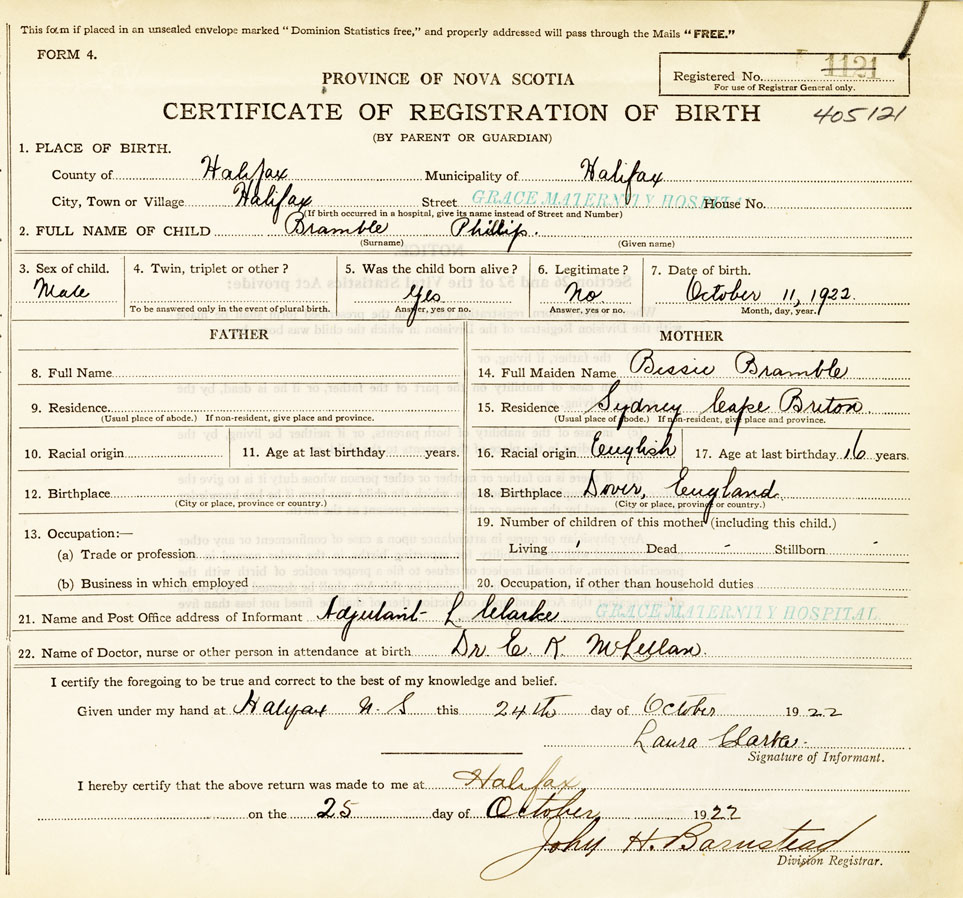 This form if placed in an unsealed envelope marked "Dominion Statistics free," and properly addressed will pass through the Mails "FREE."
FORM 4.
Registered No. 1121
For use of Registrar General only.
PROVINCE OF NOVA SCOTIA
CERTIFICATE OF REGISTRATION OF BIRTH 405121
(BY PARENT OR GUARDIAN)
1. PLACE OF BIRTH.
County of Halifax Municipality of Halifax
City, Town or Village Halifax Street GRACE MATERNITY HOSPITAL House No.
(If birth occurred in a hospital, give its name instead of Street and Number)
2. FULL NAME OF CHILD Bramble Phillip.
(Surname) (Given name)
3. Sex of child. 4. Twin, triplet or other? 5. Was the child born alive? 6. Legitimate? 7. Date of birth.
Male Yes No October 11, 1922.
To be answered only in the event of plural birth. Answer, yes or no. Answer, yes or no. Month, day, year.
FATHER MOTHER
8. Full Name 14. Full Maiden Name Bessie Bramble
9. Residence. 15. Residence Sydney Cape Briton
(Usual place of abode.) If non-resident, give place and province. (Usual place of abode.) If non-resident, give place and province.
10. Racial origin 11. Age at last birthday years. 16. Racial origin English 17. Age at last birthday 16 years.
12. Birthplace 18. Birthplace Dover, England
(City or place, province or country.) (City or place, province or country.)
13. Occupation:— 19. Number of children of this mother (including this child.)
(a) Trade or profession Living 1 Dead - Stillborn -
(b) Business in which employed 20. Occupation, if other than household duties
21. Name and Post Office address of Informant Adjutant L. Clarke GRACE MATERNITY HOSPITAL
22. Name of Doctor, nurse or other person in attendance at birth Dr E. K McLellan.
I certify the foregoing to be true and correct to the best of my knowledge and belief.
Given under my hand at Halifax N.S this 24th day of October 1922
Laura Clarke.
Signature of Informant.
I hereby certify that the above return was made to me at Halifax
on the 25 day of October 1922
John H. Barnstead
Division Registrar.